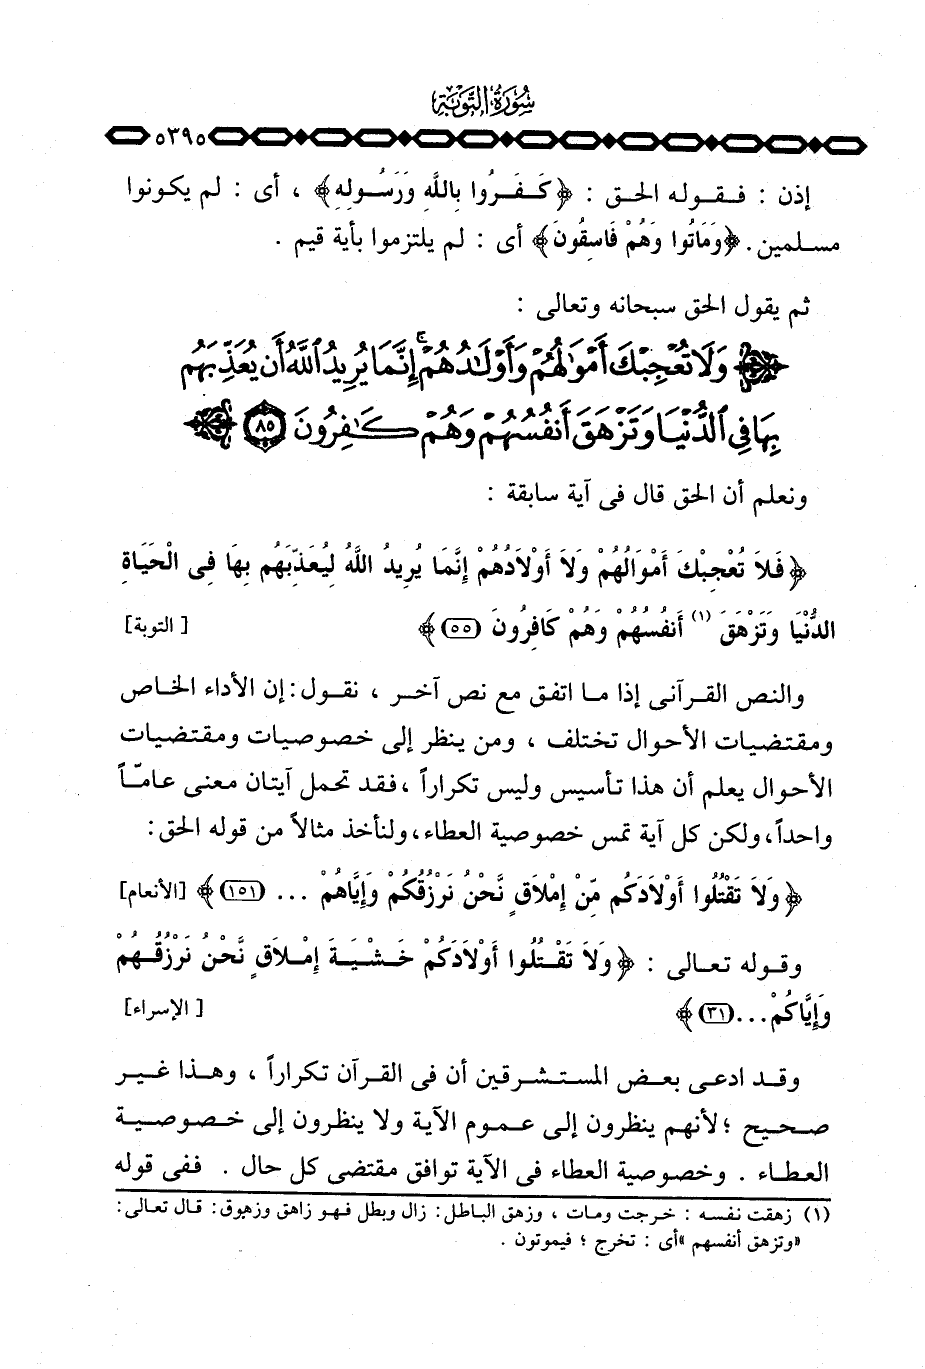 سُورَةُ التَّوْبَةِ
٥٣٩٥
إذن : فـقـولـه الحـق : ﴿ كَـفَـرُوا بِاللَّه وَرَسُـولِه ﴾ ، أى : لم يكونوا
مسـلمين . ﴿ وَمَاتُوا وَهُمْ فَاسِقُونَ ﴾ أى : لم يلتزموا بأية قيم .
ثم يقول الحق سبحانه وتعالى :
﴿ وَلَا تُعْجِبْكَ أَمْوَٰلُهُمْ وَأَوْلَـٰدُهُمْ ۚ إِنَّمَا يُرِيدُ ٱللَّهُ أَن يُعَذِّبَهُم
بِهَا فِى ٱلدُّنْيَا وَتَزْهَقَ أَنفُسُهُمْ وَهُمْ كَـٰفِرُونَ ٨٥ ﴾
ونعلم أن الحق قال فى آية سابقة :
﴿ فَلاَ تُعْجِبْكَ أَمْوَالُهُمْ وَلاَ أَوْلاَدُهُمْ إِنَّمَا يُرِيدُ اللَّهُ لِيُعَذِّبَهُم بِهَا فِى الْحَيَاةِ
الدُّنْيَا وَتَزْهَقَ (١) أَنفُسُهُمْ وَهُمْ كَافِرُونَ (٥٥) ﴾ [ التوبة]
والنص القـرآنى إذا مـا اتفـق مع نص آخـر ، نقـول : إن الأداء الخـاص
ومقتضيات الأحوال تختلف ، ومن ينظر إلى خصوصيات ومقتضيات
الأحوال يعلم أن هذا تأسيس وليس تكراراً ، فقد تحمل آيتان معنى عامّاً
واحداً، ولكن كل آية تمس خصوصية العطاء، ولنأخذ مثالاً من قوله الحق :
﴿ وَلاَ تَقْتُلُوا أَوْلاَدَكُم مِّنْ إِمْلاَقٍ نَّحْنُ نَرْزُقُكُمْ وَإِيَّاهُمْ ... (١٥١) ﴾ [الأنعام]
وقـوله تعـالى : ﴿ وَلاَ تَقْـتُلُوا أَوْلاَدَكُمْ خَـشْيَـةَ إِمْـلاَقٍ نَّحْنُ نَرْزُقُـهُمْ
وَإِيَّاكُمْ ... (٣١) ﴾ [ الإسراء]
وقـد ادعـى بعـض المسـتشـرقين أن فى القـرآن تكراراً ، وهـذا غـير
صـحيح ؛ لأنهم ينظرون إلى عـموم الآية ولا ينظرون إلى خـصـوصـيـة
العطـاء . وخـصوصية العطاء فى الآية توافق مقتضى كل حال . ففى قوله
(١) زهقت نفسه : خرجت ومات ، وزهق الباطل : زال وبطل فهو زاهق وزهوق : قال تعالى :
«وتزهق أنفسهم » أى : تخرج ؛ فيموتون .